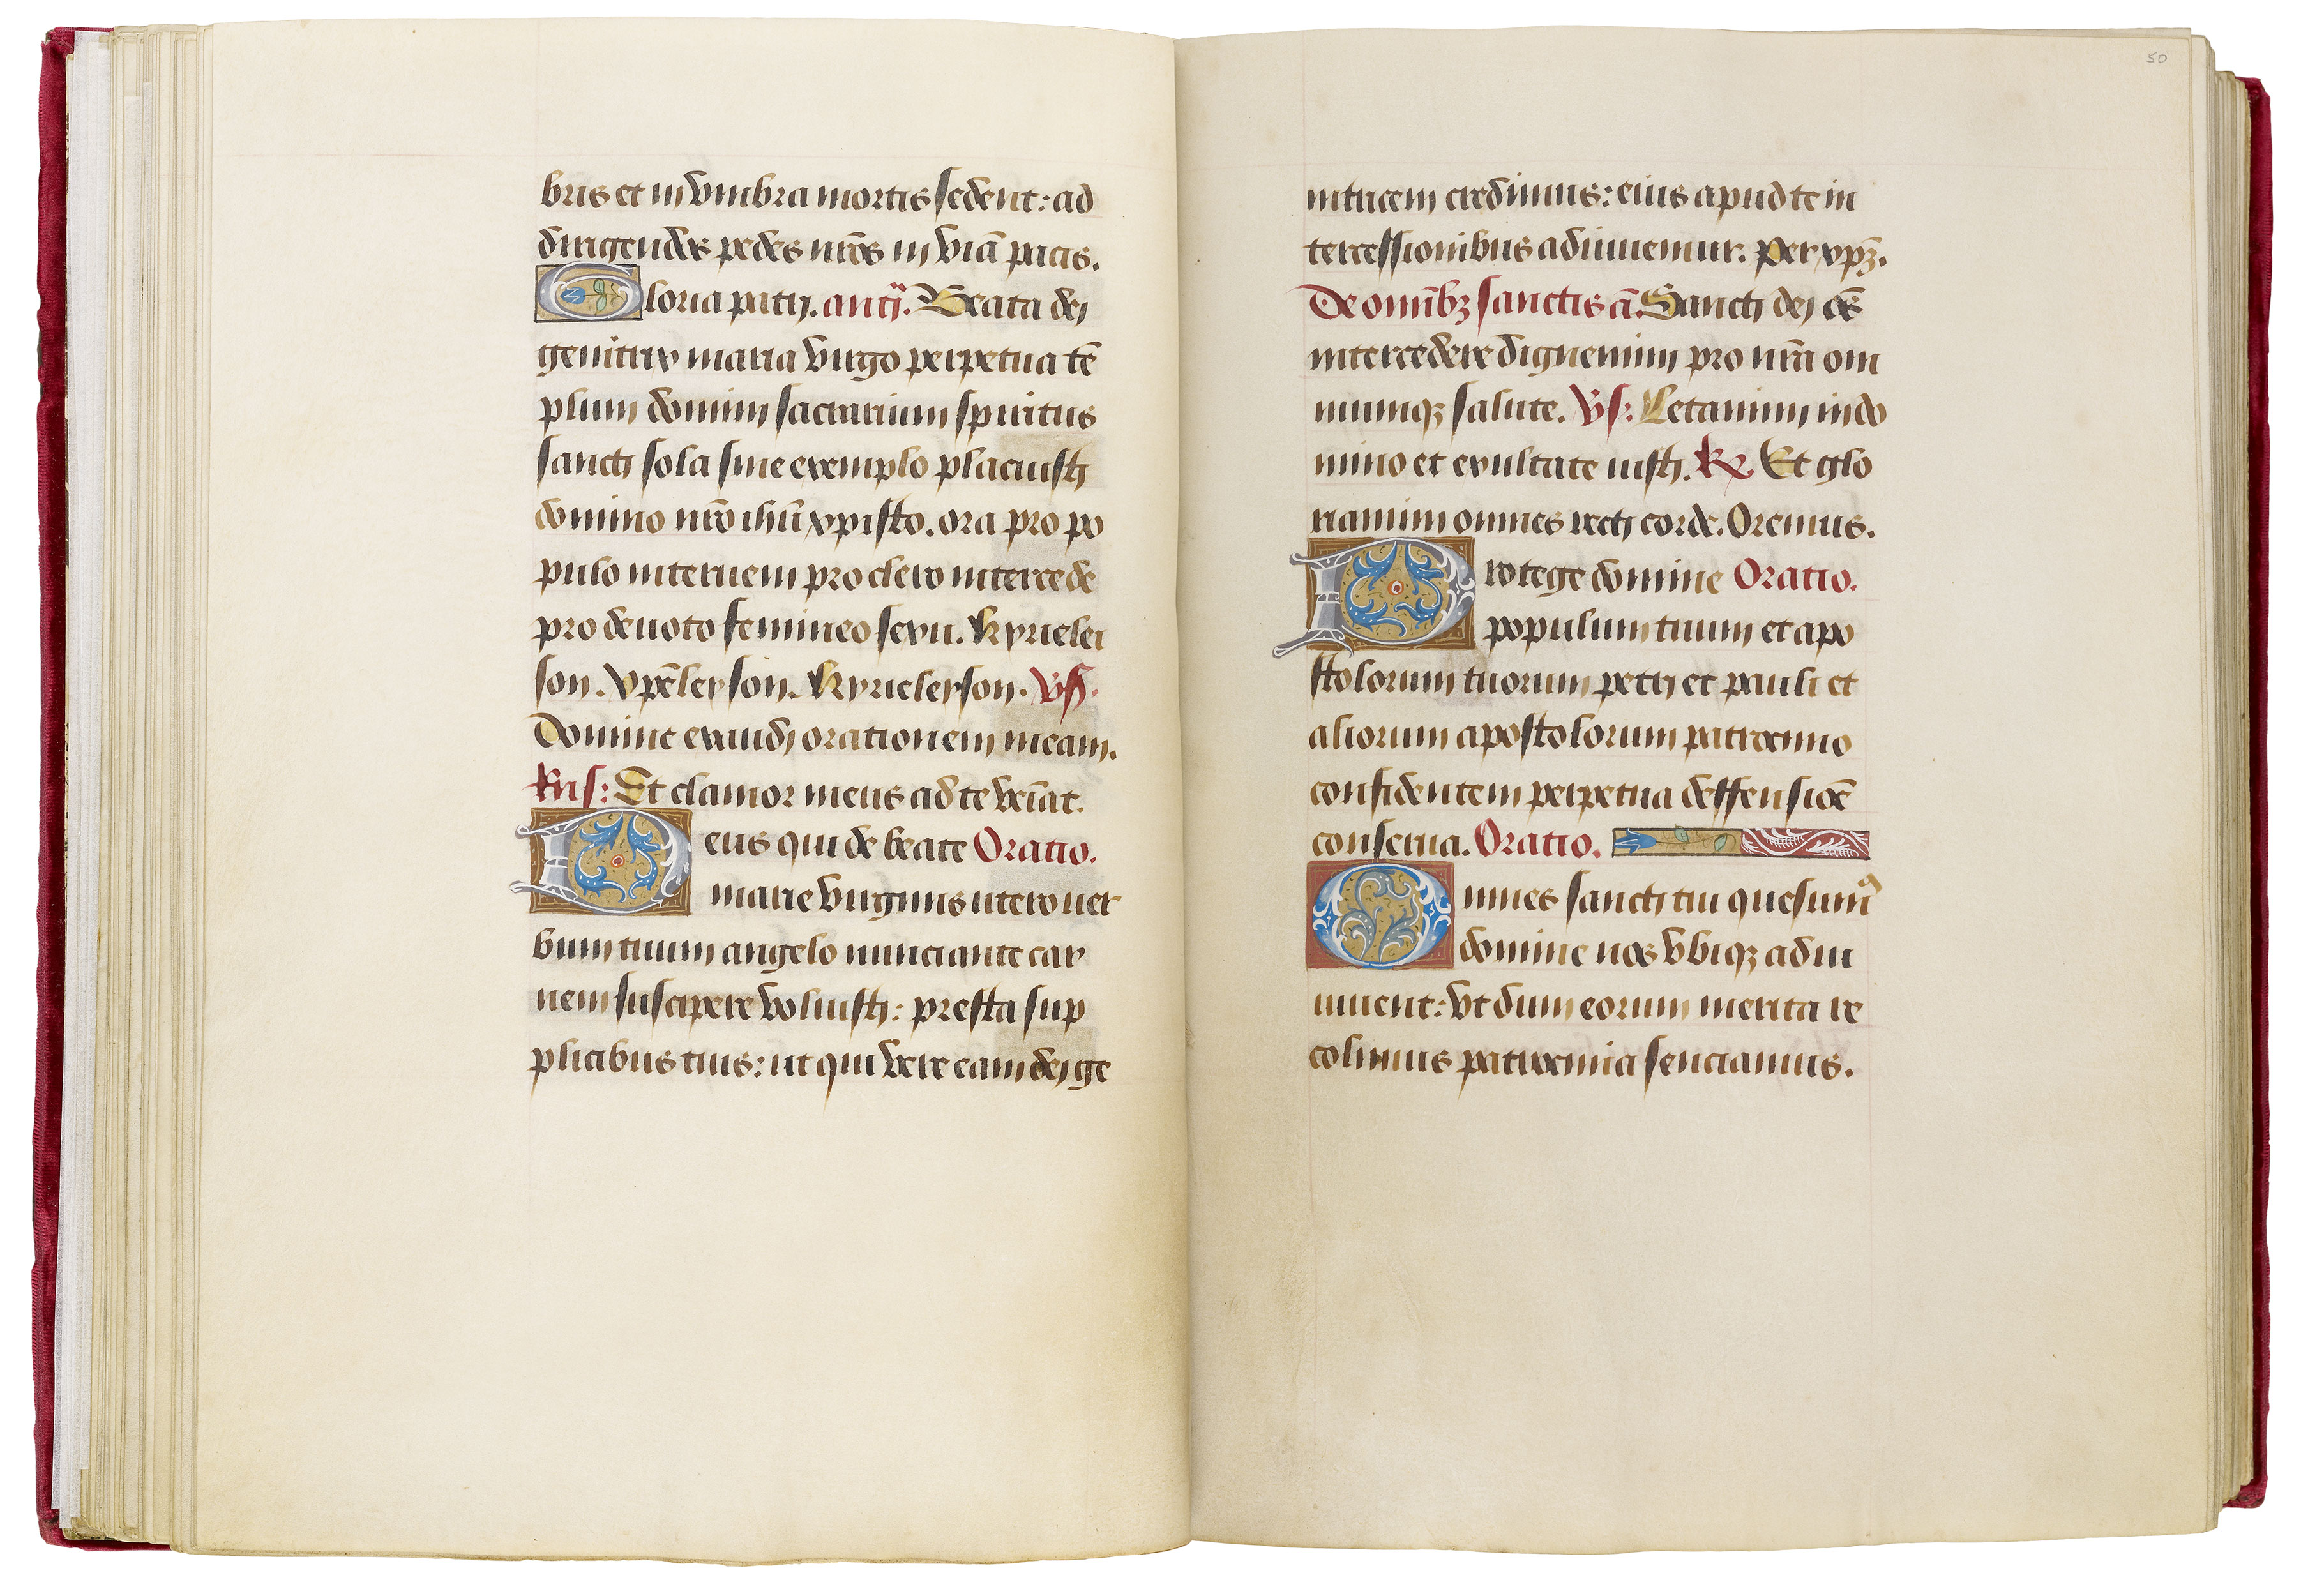 bris et in vmbra mortis sedent: ad
dirigendos pedes nr̄os in viā pacis.
Gloria patri. antī. Beata dei
genitrix maria virgo perpetua tē
plum domini sacrarium spiritus
sancti sola sine exemplo placuisti
domino nr̄o ihū xpisto. ora pro po
pulo interueni pro clero intercede
pro deuoto femineo sexu. kyrielei
son. xpēleyson. kyrieleyson. vs.
Domine exaudi orationem meam.
Res: Et clamor meus ad te veniat.
Deus qui de beate Oratio.
marie virginis utero uer
bum tuum angelo nunciante car
nem suscipere voluisti: presta sup
plicibus tuis: ut qui vere eam dei ge
50
nitricem credimus: eius apud te in
tercessionibus adiuuemur. Per xpꝫ.
De omībꝫ sanctis ā. Sancti dei oēs
intercedere dignemini pro nr̄a om
niumqꝫ salute. vs: Letamini in do
mino et exultate iusti. ℟ Et glo
riamini omnes recti corde. Oremus.
Protege domine Oratio.
populum tuum et apo
stolorum tuorum petri et pauli et
aliorum apostolorum patrocinio
confidentem perpetua deffensiōe
conserua. Oratio.
Omnes sancti tui quesumꝰ
domine nos vbiqꝫ adiu
uuent: vt dum eorum merita re
colimus patrocinia senciamus.